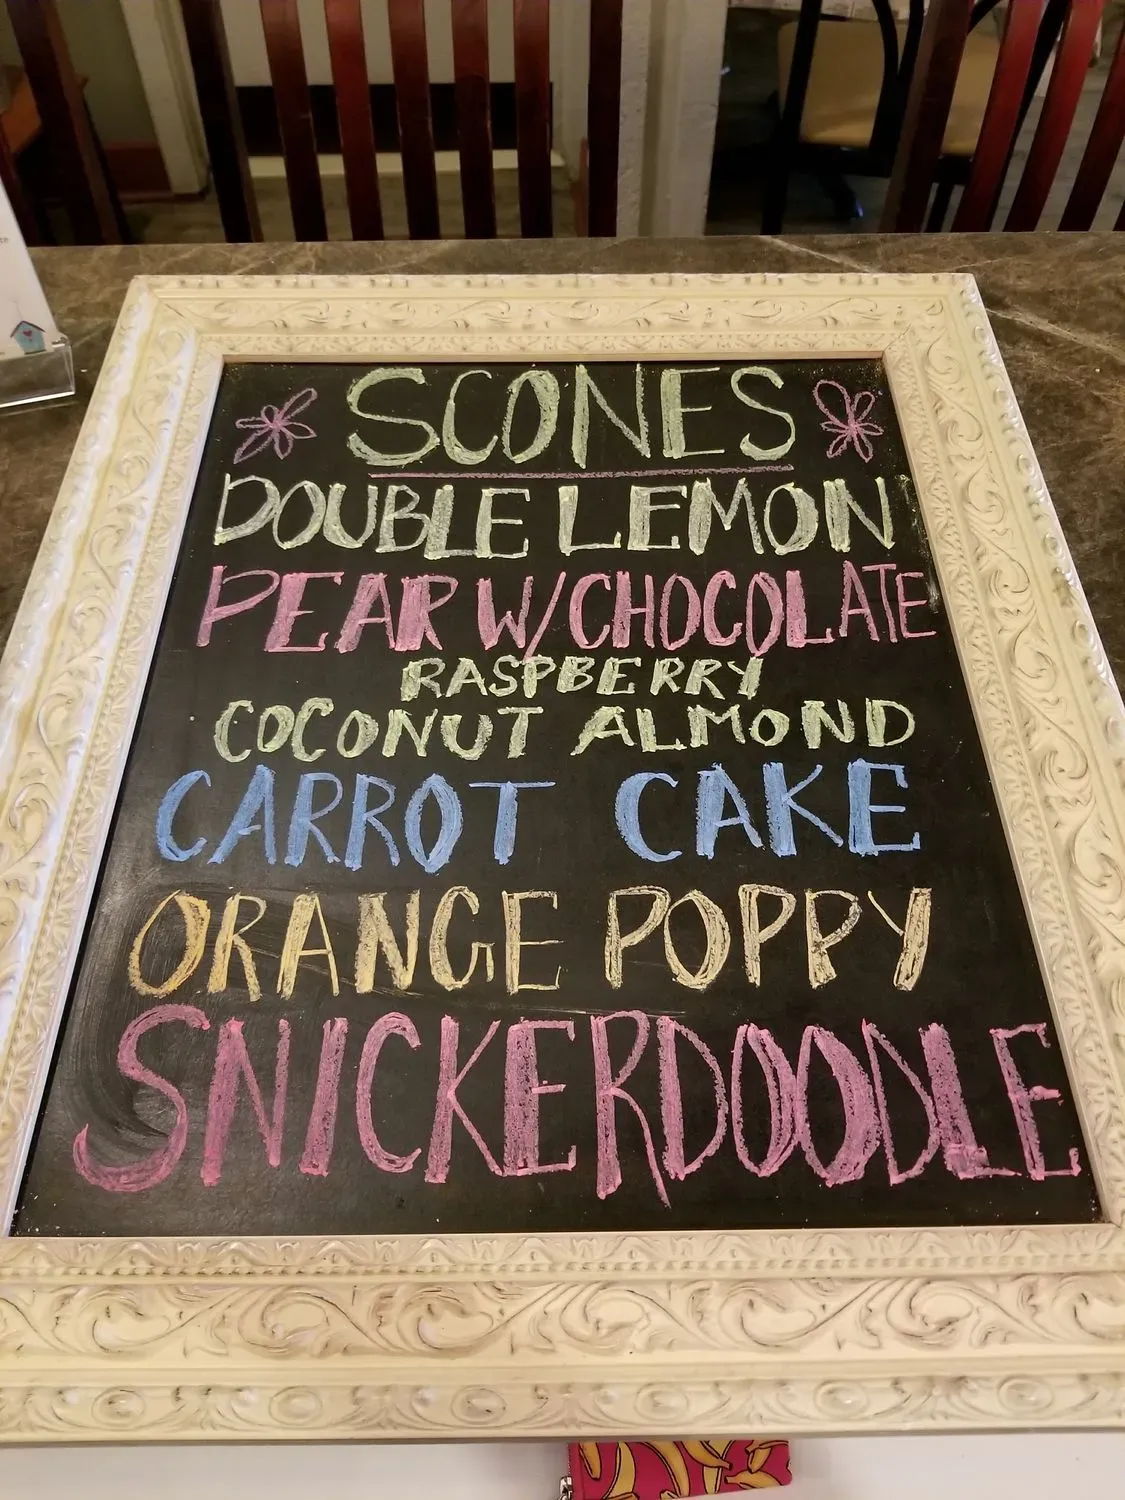 SCONES
DOUBLE LEMON
PEAR W/CHOCOLATE
RASPBERRY
COCONUT ALMOND
CARROT CAKE
ORANGE POPPY
SNICKERDOODLE